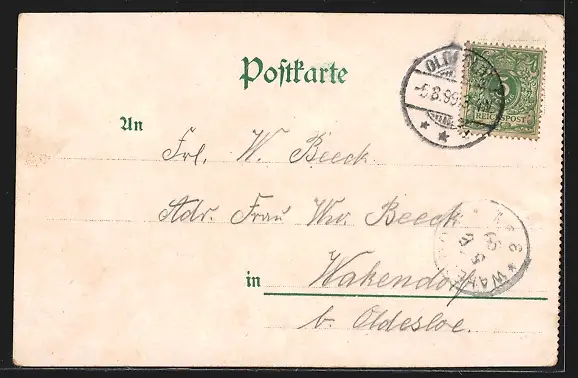 Postkarte
-6.8.99
REICHSPOST
An
Frl. W. Beeck
Adr. Frau Wwe. Beeck
in Wakendorf
b. Oldesloe.